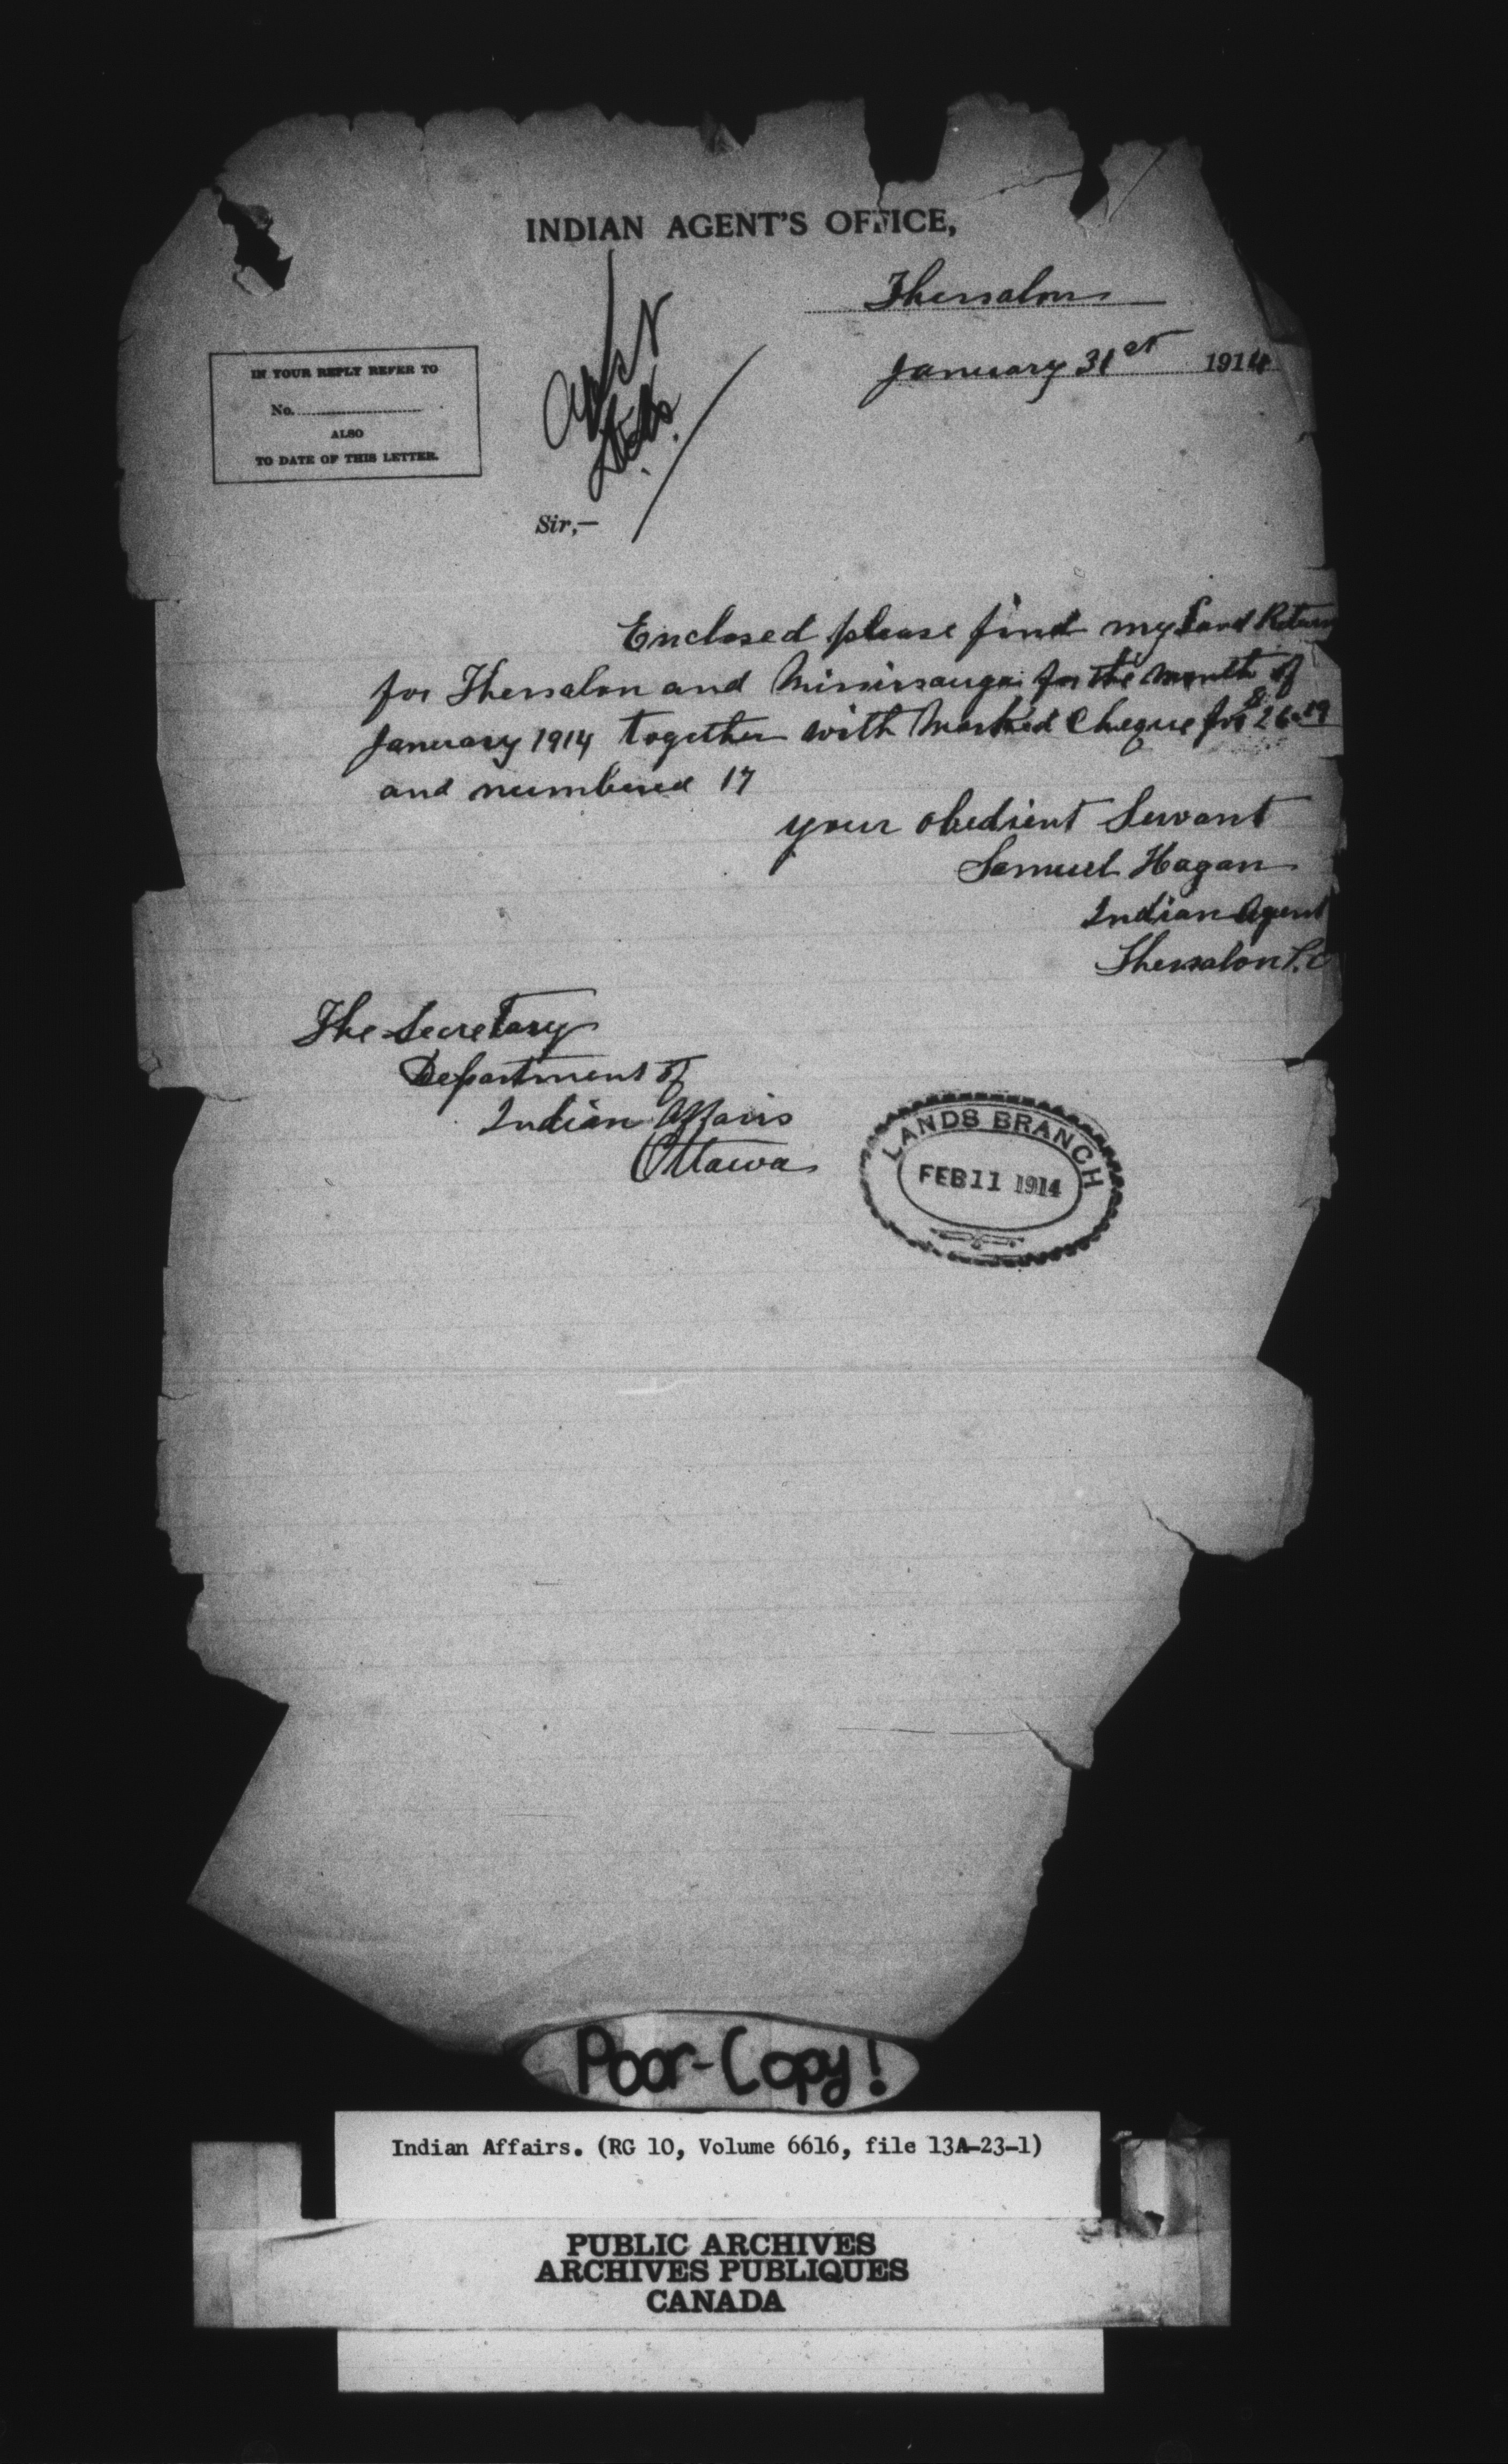 INDIAN AGENT'S OFFICE,
Thessalon
January 31st 1914
IN YOUR REPLY REFER TO
No.
ALSO
TO DATE OF THIS LETTER.
Sir,—
Enclosed please find my Land Return
for Thessalon and Mississauga for the month of
January 1914 together with Marked Cheque for $26.19
and numbered 17
your obedient Servant
Samuel Hagan
Indian Agent
Thessalon P.O
The Secretary
Department of
Indian Affairs
Ottawa
LANDS BRANCH
FEB 11 1914
Poor-Copy!
Indian Affairs. (RG 10, Volume 6616, file 13A-23-1)
PUBLIC ARCHIVES
ARCHIVES PUBLIQUES
CANADA